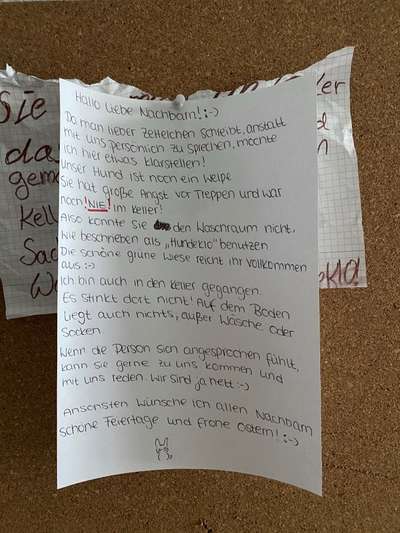 Hallo Liebe Nachbarn! :-)
Da man lieber Zettelchen schreibt, anstatt
mit uns persönlich zu sprechen, möchte
ich hier etwas klarstellen!
unser Hund ist noch ein Welpe
Sie hat große Angst vor Treppen und war
noch !NIE! im Keller!
Also konnte sie den Waschraum nicht,
wie beschrieben als „Hundeklo" benutzen
Die schöne grüne Wiese reicht ihr vollkommen
aus :-)
Ich bin auch in den Keller gegangen.
Es stinkt dort nicht! Auf dem Boden
liegt auch nichts, außer Wäsche oder
Socken.
Wenn die Person sich angesprochen fühlt,
kann sie gerne zu uns kommen und
mit uns reden. Wir sind ja nett :-)
Ansonsten wünsche ich allen Nachbarn
schöne Feiertage und frohe Ostern! :-)
Sie
da
gem
Kell
Sac